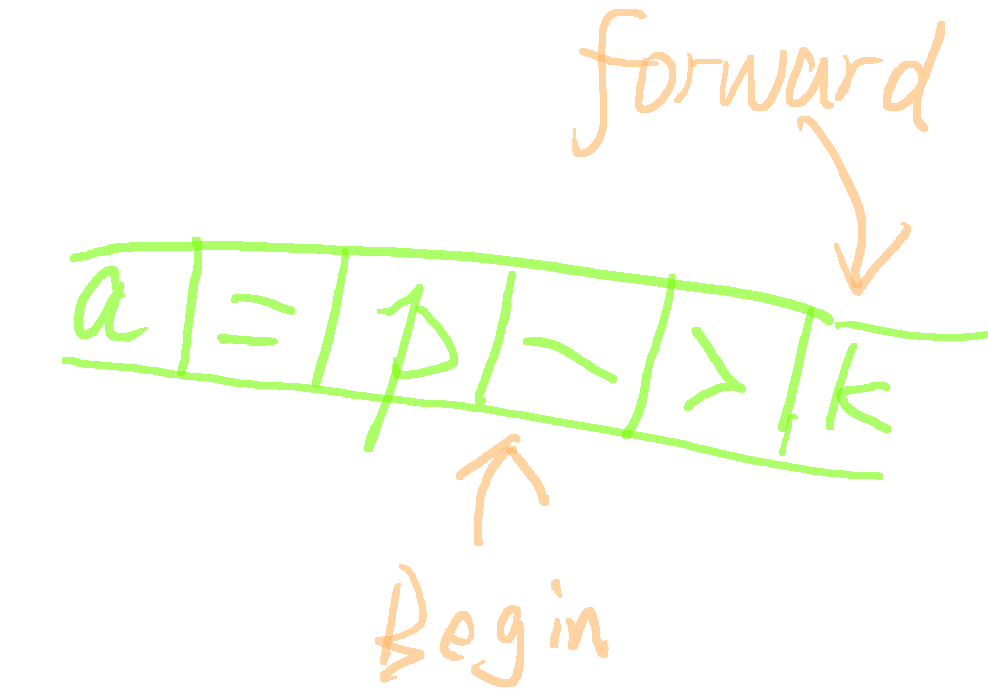 forward
a = p - > k
Begin